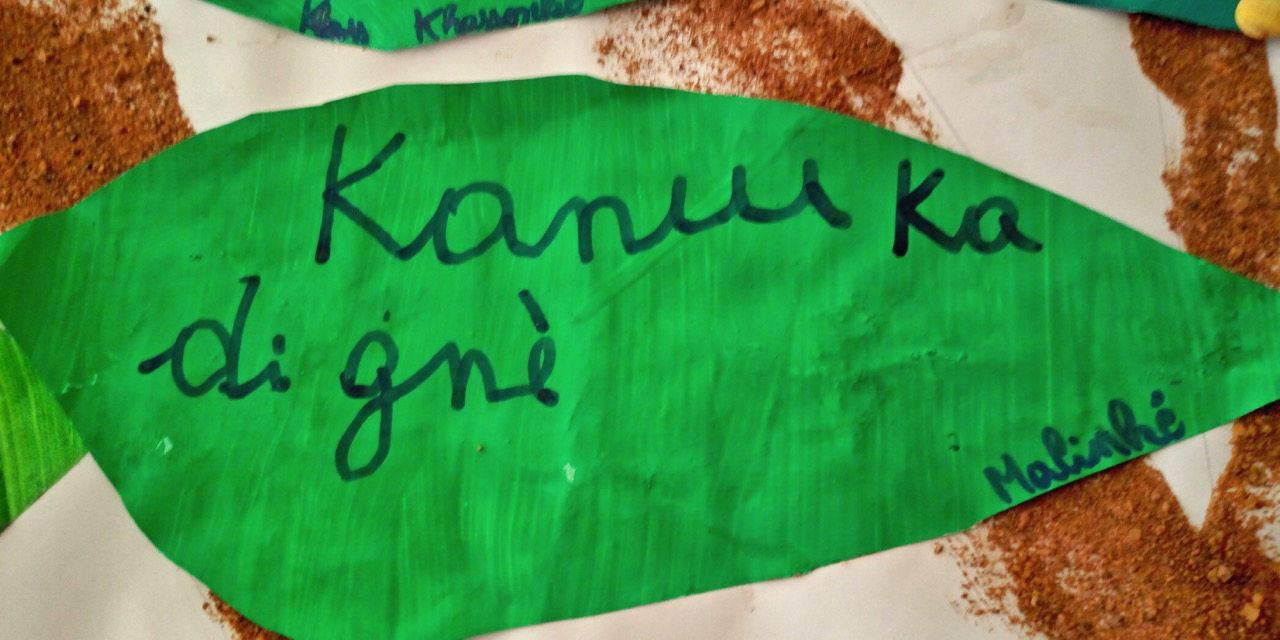 Khassonké
Kanuu ka
di gnè
Malinké